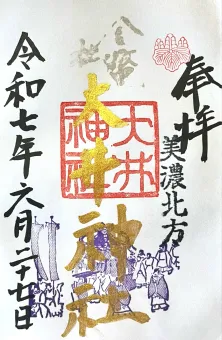 奉拝
美濃北方
金幣社
大井神社
大井
神社
令和七年六月二十七日